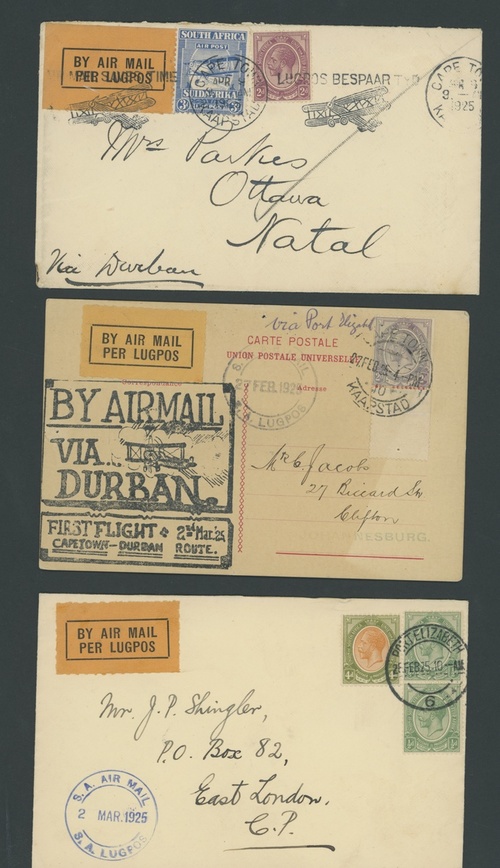 BY AIR MAIL
PER LUGPOS
SOUTH AFRICA
AIR POST
SUIDAFRIKA
3d
2d 2d
TIME
LUGPOS BESPAAR TYD
CAPE TOWN
KAAPSTAD
CAPE TO
1925
Mrs Parkes
Ottawa
Natal
Via Durban
BY AIR MAIL
PER LUGPOS
via Port Elizabeth
CARTE POSTALE
UNION POSTALE UNIVERSELLE
Correspondance
Adresse
27 FEB 1925
S.A. LUGPOS
CAPE TOWN
27 FEB 25
KAAPSTAD
BY AIRMAIL
VIA
DURBAN.
FIRST FLIGHT
CAPETOWN–DURBAN
2nd Mar. '25
ROUTE.
Mr C. Jacobs
27 Biccard St
Clifton
JOHANNESBURG.
BY AIR MAIL
PER LUGPOS
4d
PORT ELIZABETH
25 10 – AM
6
½d ½d
Mr. J. P. Shingler,
P.O. Box 82,
East London.
C.P.
S.A. AIR MAIL
2 MAR. 1925
S.A. LUGPOS